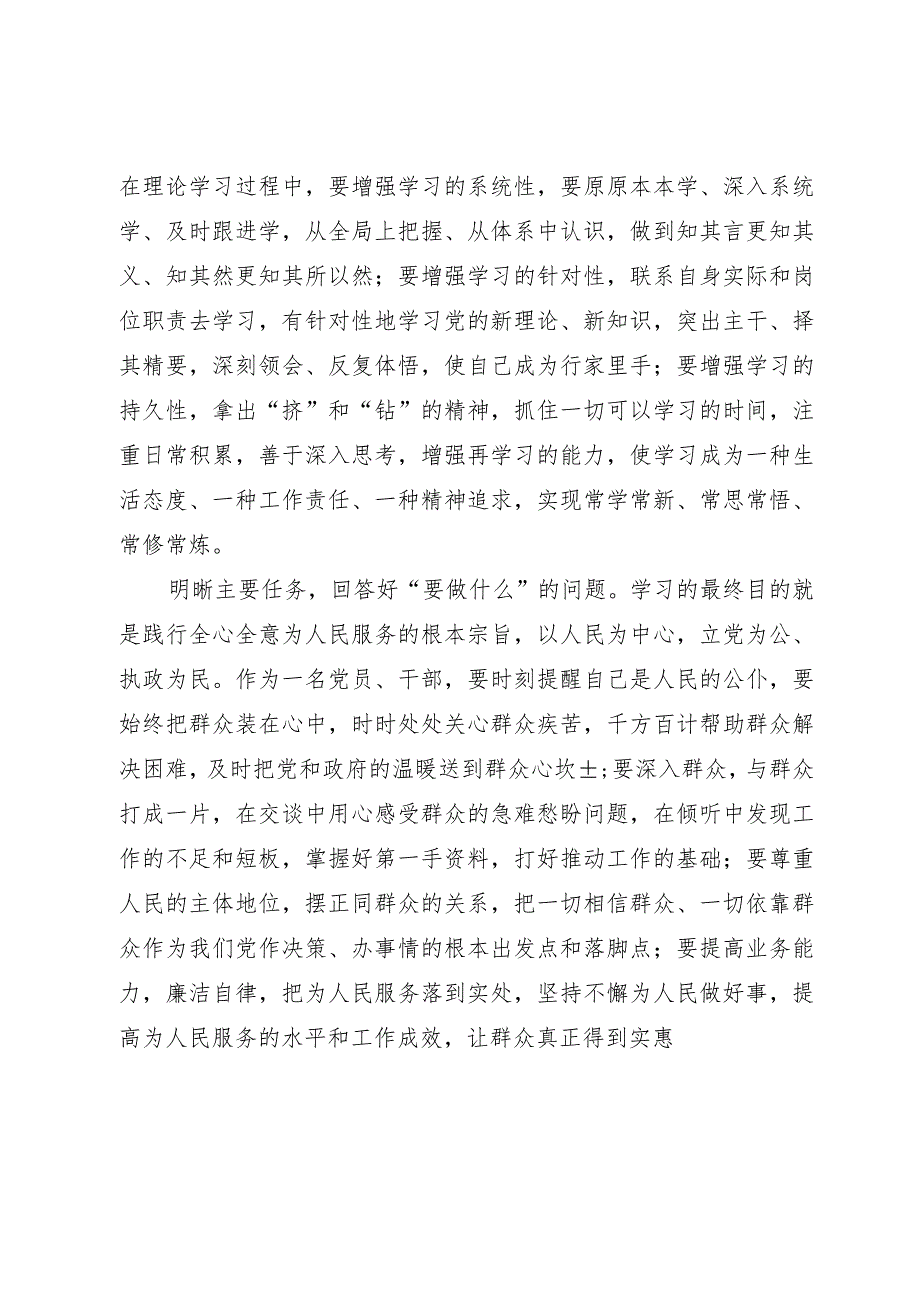 在理论学习过程中，要增强学习的系统性，要原原本本学、深入系统
学、及时跟进学，从全局上把握、从体系中认识，做到知其言更知其
义、知其然更知其所以然；要增强学习的针对性，联系自身实际和岗
位职责去学习，有针对性地学习党的新理论、新知识，突出主干、择
其精要，深刻领会、反复体悟，使自己成为行家里手；要增强学习的
持久性，拿出“挤”和“钻”的精神，抓住一切可以学习的时间，注
重日常积累，善于深入思考，增强再学习的能力，使学习成为一种生
活态度、一种工作责任、一种精神追求，实现常学常新、常思常悟、
常修常炼。
明晰主要任务，回答好“要做什么”的问题。学习的最终目的就
是践行全心全意为人民服务的根本宗旨，以人民为中心，立党为公、
执政为民。作为一名党员、干部，要时刻提醒自己是人民的公仆，要
始终把群众装在心中，时时处处关心群众疾苦，千方百计帮助群众解
决困难，及时把党和政府的温暖送到群众心坎±;要深入群众，与群众
打成一片，在交谈中用心感受群众的急难愁盼问题，在倾听中发现工
作的不足和短板，掌握好第一手资料，打好推动工作的基础；要尊重
人民的主体地位，摆正同群众的关系，把一切相信群众、一切依靠群
众作为我们党作决策、办事情的根本出发点和落脚点；要提高业务能
力，廉洁自律，把为人民服务落到实处，坚持不懈为人民做好事，提
高为人民服务的水平和工作成效，让群众真正得到实惠